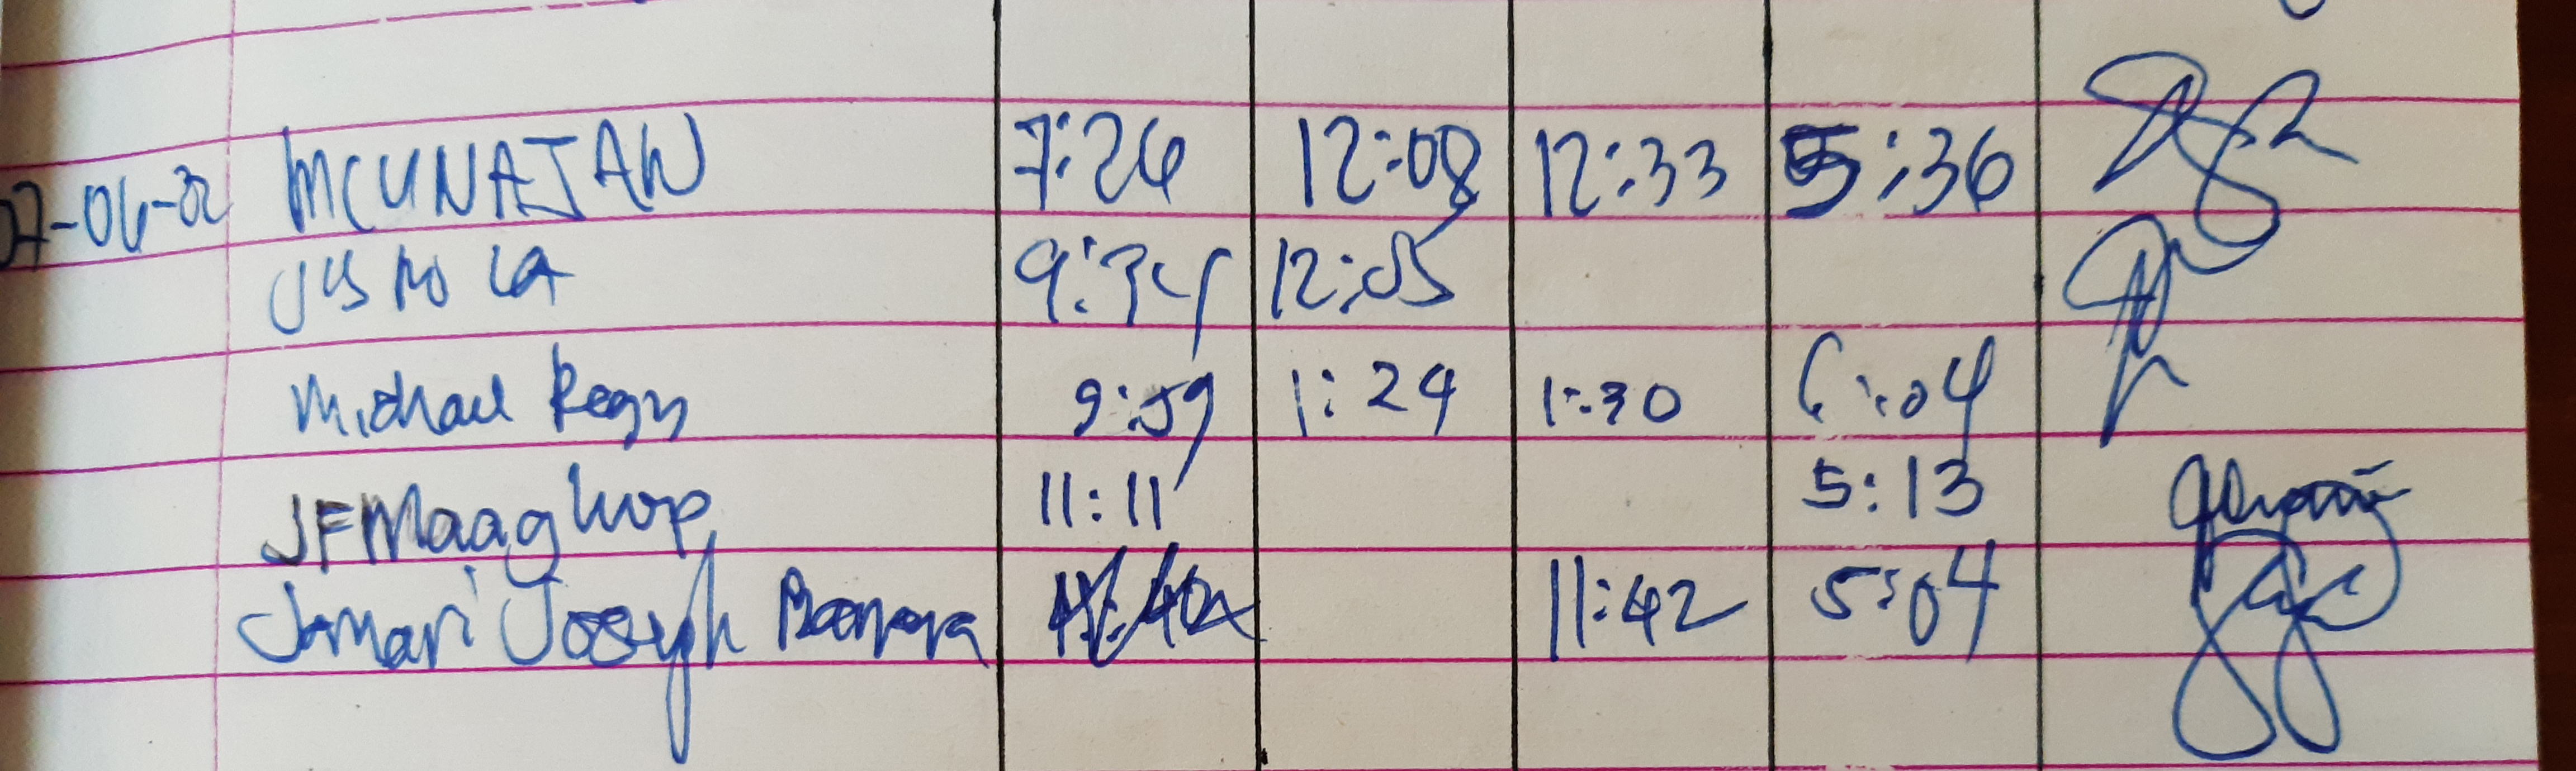 07-06-22 MCUNAJAN 7:26 12:08 12:33 5:36
9:34 12:05
Michael 9:59 1:24 1:30 6:04
JFMaaghop 11:11 5:13
Jomari Joseph 11:42 5:04